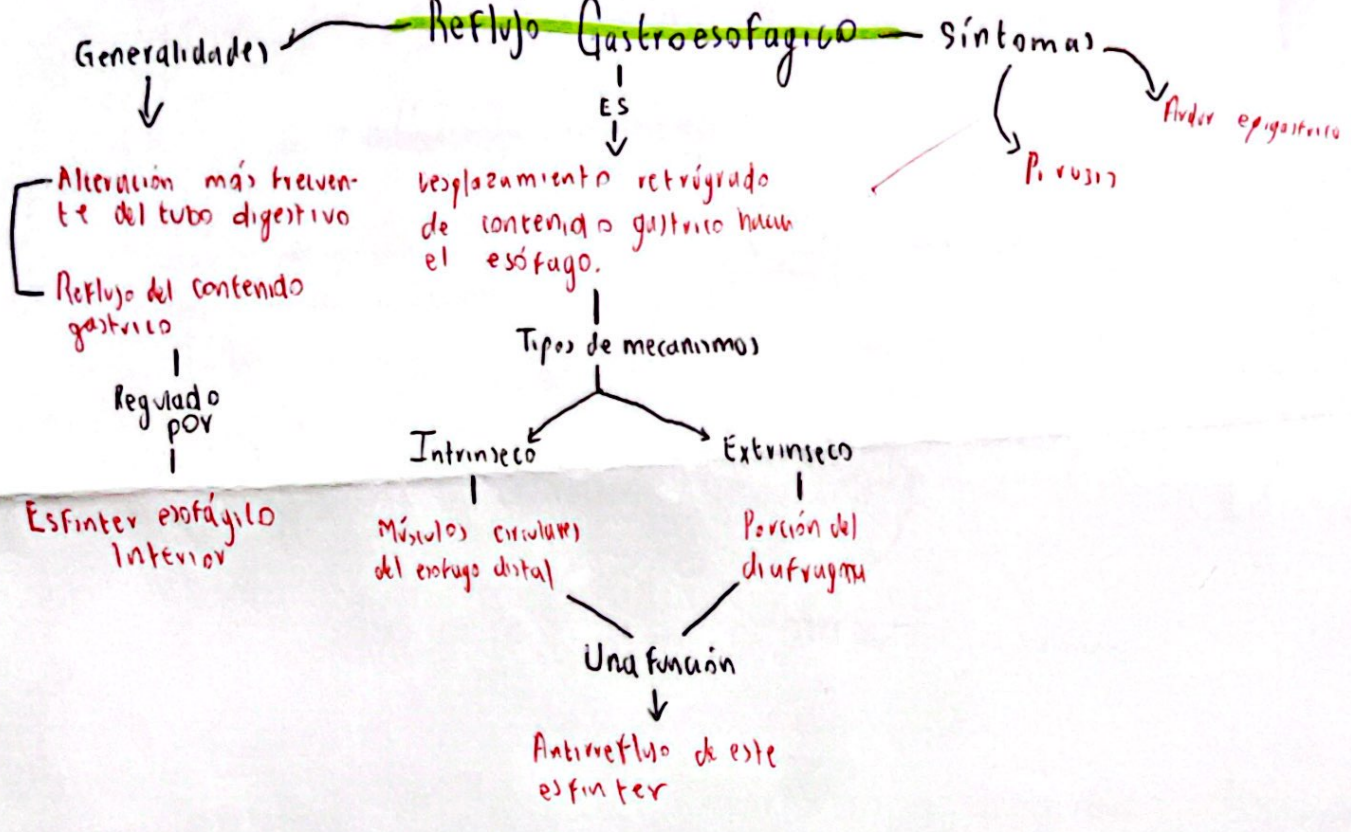 Reflujo Gastroesofagico
Generalidades
Alteración más frecuen-
te del tubo digestivo
Reflujo del contenido
gastrico
Regulado
por
Esfinter esofágico
Inferior
ES
Desplazamiento retrógrado
de contenido gastrico hacia
el esófago.
Tipos de mecanismos
Intrinseco
Músculos circulares
del esofago distal
Extrinseco
Porción del
diafragma
Una función
Antirreflujo de este
esfinter
Síntomas
Pirosis
Ardor epigastrico